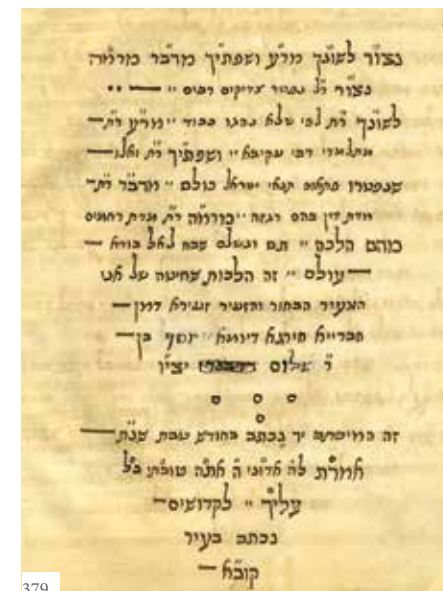 נצור לשונך מרע ושפתיך מדבר מרמה
נצור ר"ל נפטר צדיקים רבים
לשונך ר"ת לפי שלא נהגו כבוד מרע ר"ת
מתלמידי רבי עקיבא ושפתיך ר"ת ואלו
שנפטרו פתאום תנאי ישראל כולם מדבר ר"ת
מדת דין בהם רגזה מרמה ר"ת מדת רחמים
מהם הלכה תם ונשלם שבח לאל בורא
עולם זה הלכות שחיטה של אני
הצעיר הבחור והזעיר זעירא דמן
חברייא תירגא דיומא יוסף בן
ר' שלום יצ"ו
זה נכתב בחודש טבת שנת
אמרת לה' אדוני ה' אתה טובתי בל
עליך לקדושים
נכתב בעיר
קובא
379